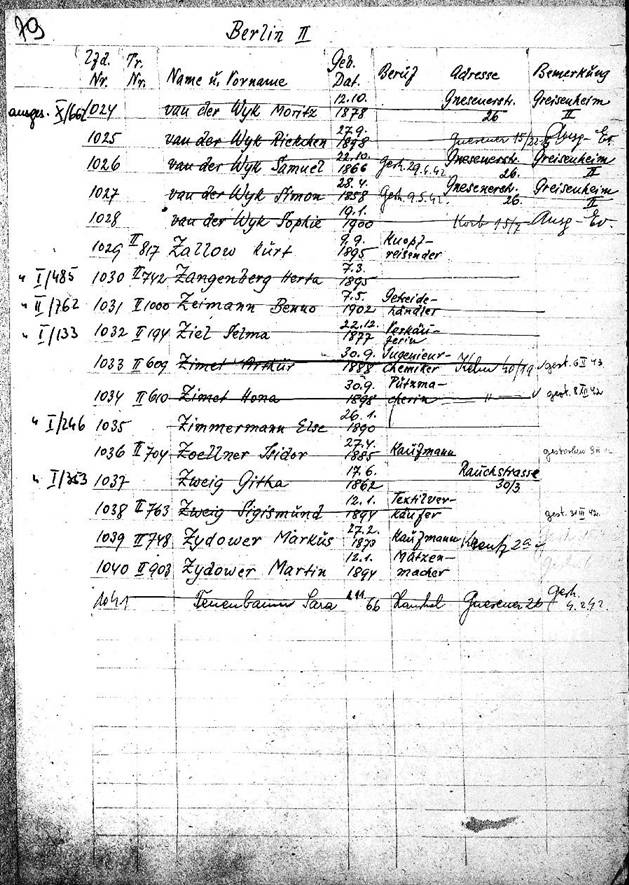 79
Berlin II
Lfd. Nr. Tr. Nr. Name u. Vorname Geb. Dat. Beruf Adresse Bemerkung
ausges. X/667 1024 van der Wyk Moritz 12.10. 1878 Gnesenerstr. 26 Greisenheim II
1025 van der Wyk Riekchen 27.9. 1898 Gnesener 15/22 Ausg - Ev.
1026 van der Wyk Samuel 22.10. 1866 Gest. 29.4.42 Gnesenerstr. 26. Greisenheim II
1027 van der Wyk Simon 28.4. 1858 Gest. 9.5.42. Gnesenerstr. 26. Greisenheim II
1028 van der Wyk Sophie 19.1. 1900 15/2 Ausg - Ev.
1029 II 817 Zallow Kurt 9.9. 1895 Knopf- reisender
" I/485 1030 II 742 Zangenberg Herta 7.3. 1895
" II/762 1031 II 1000 Zeimann Benno 7.5. 1902 Getreide- händler
" I/133 1032 II 194 Ziel Selma 22.12. 1877 Verkäu- ferin
1033 II 609 Zimet Arthur 30.9. 1888 Ingenieur- Chemiker 40/19 gest. 6 43
1034 II 610 Zimet Ilona 30.9. 1898 Putzma- cherin " gest. 8 XII 42
" I/246 1035 Zimmermann Else 26.1. 1890
1036 II 704 Zoellner Isidor 27.4. 1885 Kaufmann gestorben
" I/353 1037 Zweig Gitka 17.6. 1862 Rauchstrasse 30/3
1038 II 763 Zweig Sigismund 12.1. 1894 Textilver- käufer gest. 31 III 42.
1039 II 748 Zydower Markus 27.2. 1873 Kaufmann 29
1040 II 903 Zydower Martin 12.1. 1894 Mützen- macher
1041 Tenenbaum Sara 66 Haush. Gnesener 26 Gest. 4.2 42.